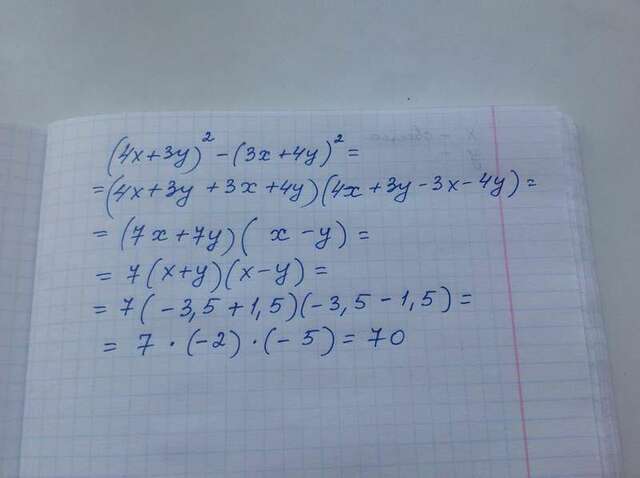 (4x+3y)² - (3x+4y)² =
= (4x+3y+3x+4y)(4x+3y-3x-4y) =
= (7x+7y)(x-y) =
= 7(x+y)(x-y) =
= 7(-3,5+1,5)(-3,5-1,5) =
= 7·(-2)·(-5) = 70